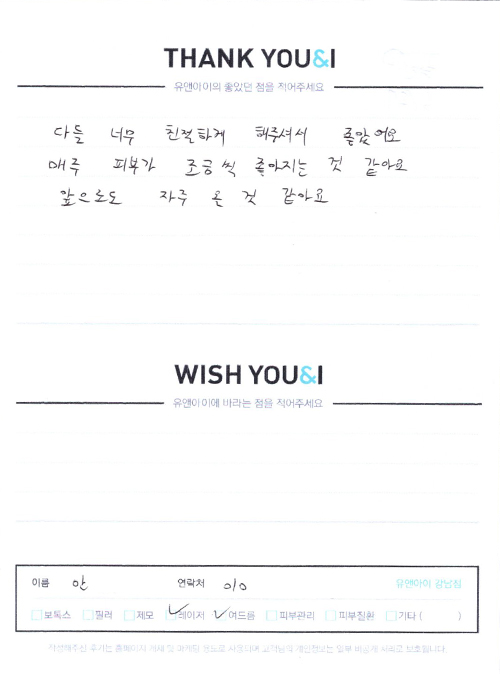 THANK YOU&I
유앤아이의 좋았던 점을 적어주세요
다들 너무 친절하게 해주셔서 좋았어요
매주 피부가 조금씩 좋아지는 것 같아요
앞으로도 자주 온 것 같아요
WISH YOU&I
유앤아이에 바라는 점을 적어주세요
이름 안 연락처 010 유앤아이 강남점
보톡스 필러 제모 레이저 여드름 피부관리 피부질환 기타 ( )
작성해주신 후기는 홈페이지 게재 및 마케팅 용도로 사용되며 고객님의 개인정보는 일부 비공개 처리로 보호됩니다.